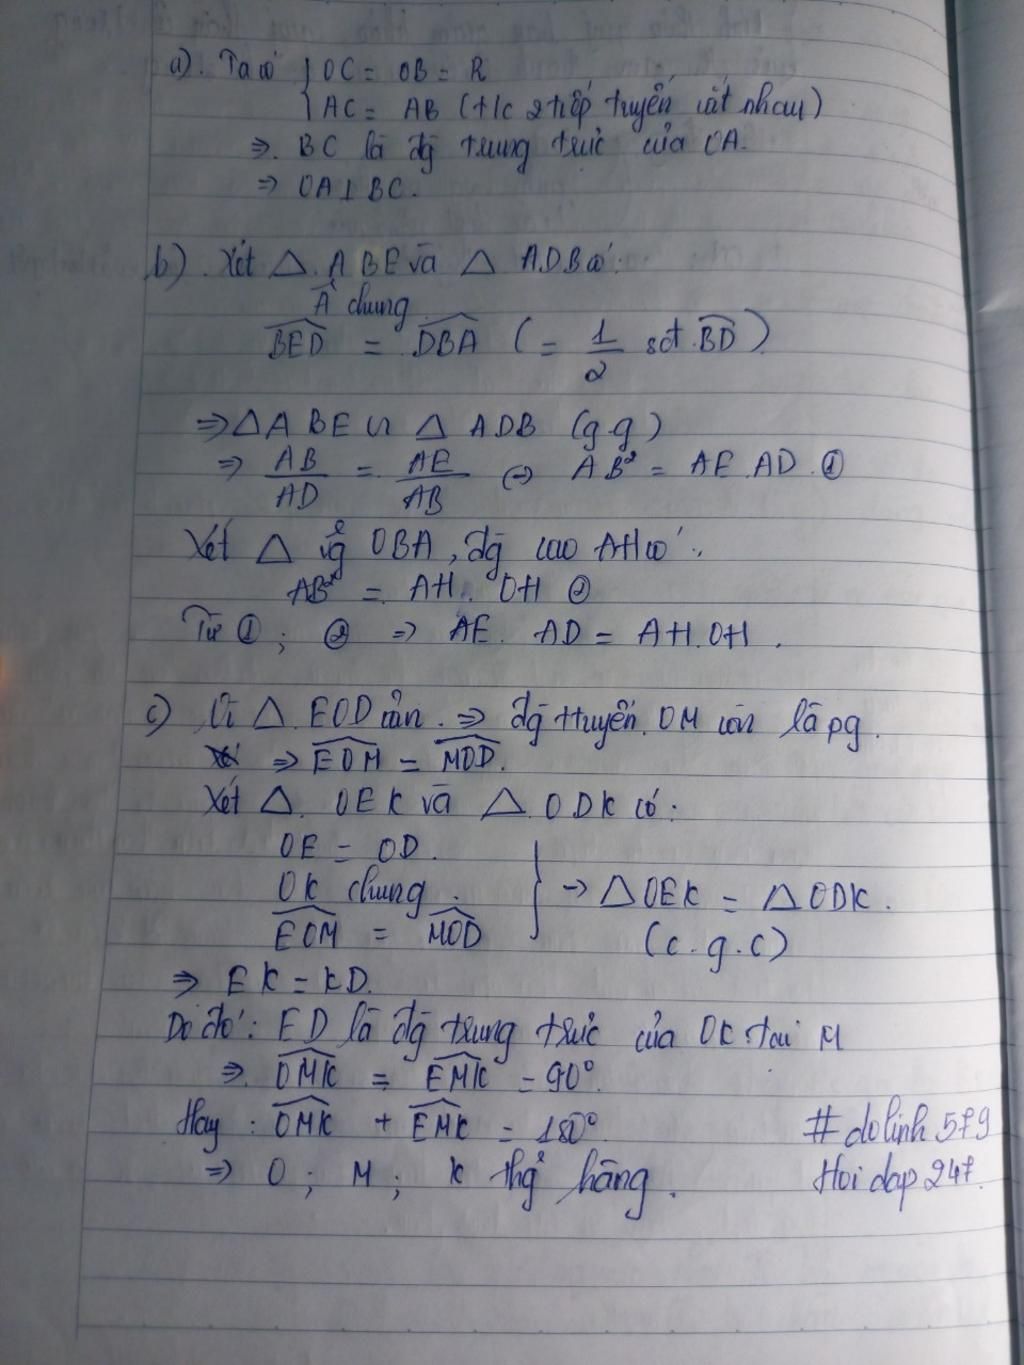 a). Ta có { OC = OB = R
AC = AB (t/c 2 tiếp tuyến cắt nhau)
⇒. BC là đg trung trực của OA.
⇒ OA ⊥ BC.
b). Xét △. ABE và △ ADB có:
Â chung
BED = DBA ( = 1/2 sđ BD )
⇒ △ABE ∽ △ ADB (g.g)
⇒ AB/AD = AE/AB (⇒ AB² = AE.AD. ①
Xét △ vg OBA, đg cao AH có:
AB² = AH. OH ②
Từ ①; ② ⇒ AE. AD = AH.OH.
c) Vì △. EOD cân. ⇒ đg ttuyến. OM còn là pg.
⇒ EOM = MOD.
Xét △. OEK và △ ODK có:
OE = OD.
OK chung.
EOM = MOD } ⇒ △OEK = △ODK.
(c.g.c)
⇒ EK = KD.
Do đó: ED là đg trung trực của OK tại M
⇒. DMK = EMK = 90°.
Hay: DMK + EMK = 180°
⇒ O; M; K thg hàng.
# dolinh 579
Hoi dap 247.